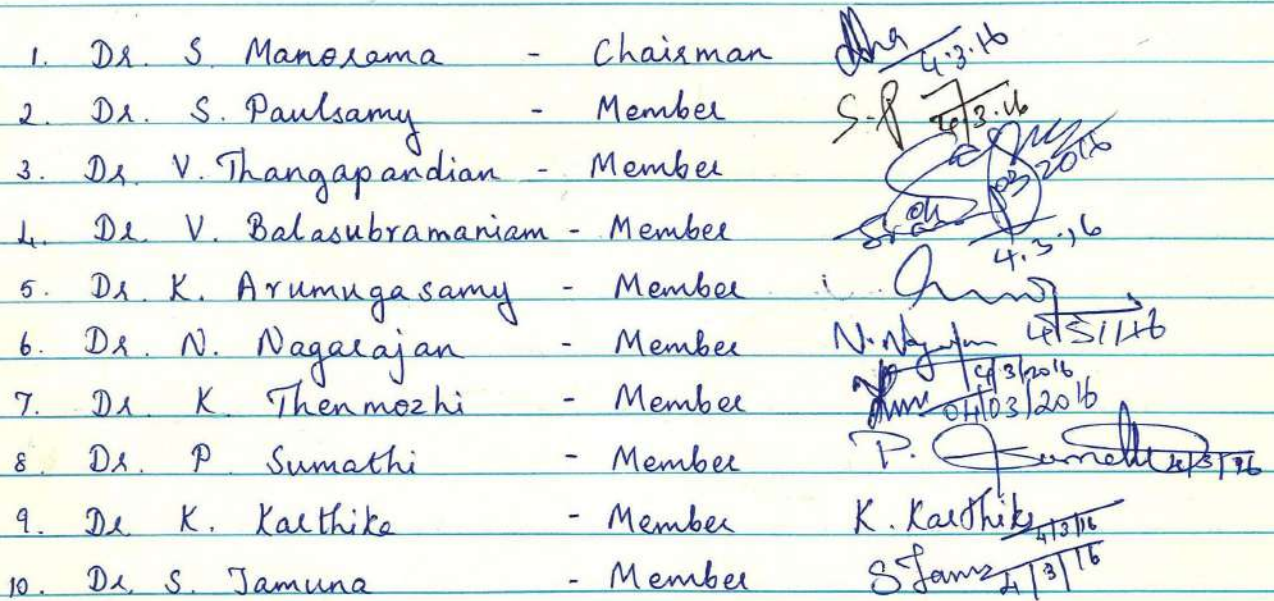 1. Dr. S. Manorama - Chairman 4.3.16
2. Dr. S. Paulsamy - Member S.P 4/3.16
3. Dr V. Thangapandian - Member 03/2016
4. Dr. V. Balasubramaniam - Member 4.3.16
5. Dr. K. Arumugasamy - Member
6. Dr. N. Nagarajan - Member N. 4/3/2016
7. Dr K. Thenmozhi - Member 04/03/2016
8. Dr. P. Sumathi - Member P. 4/3/16
9. Dr K. Karthika - Member K. Karthika 4/3/16
10. Dr. S. Jamuna - Member 4/3/16